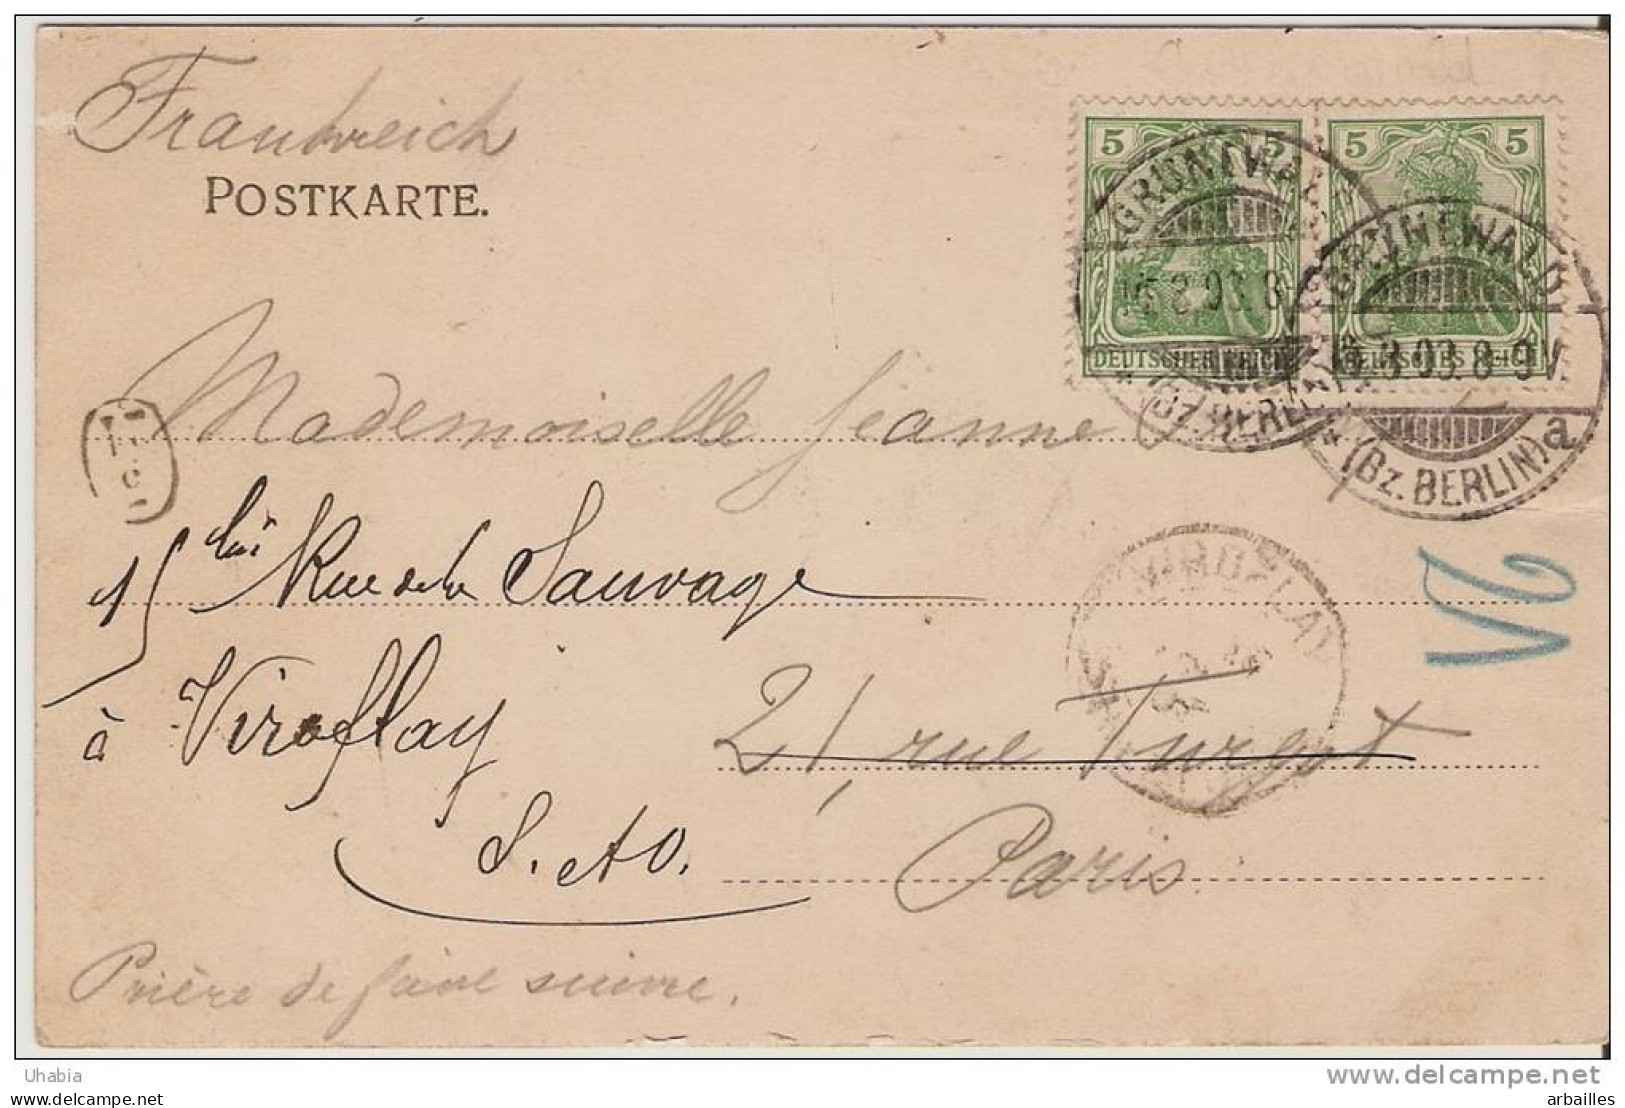 Frankreich
POSTKARTE.
5 5
5 5
DEUTSCHES REICH
DEUTSCHES REICH
GRUNEWALD
(BZ. BERLIN)
GRUNEWALD
3.03.8-9V.
(BZ. BERLIN) a
Mademoiselle Jeanne
15 bis Rue de la Sauvage
à Viroflay
S. et O.
VIROFLAY
21, rue Turgot
Paris.
Prière de faire suivre.
Uhabia
www.delcampe.net
arbailles